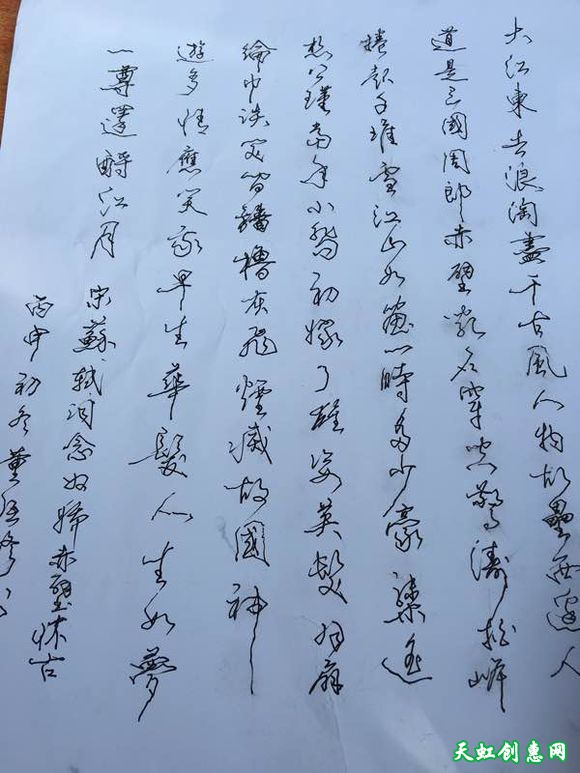 大江東去浪淘盡千古風人物故壘西邊人
道是三國周郎赤壁亂石穿空驚濤拍岸
捲起千堆雪江山如畫一時多少豪傑遙
想公瑾當年小喬初嫁了雄姿英發羽扇
綸巾談笑間檣櫓灰飛煙滅故國神
遊多情應笑我早生華髮人生如夢
一尊還酹江月 宋蘇軾詞念奴嬌赤壁懷古
丙申初冬董
天虹创惠网